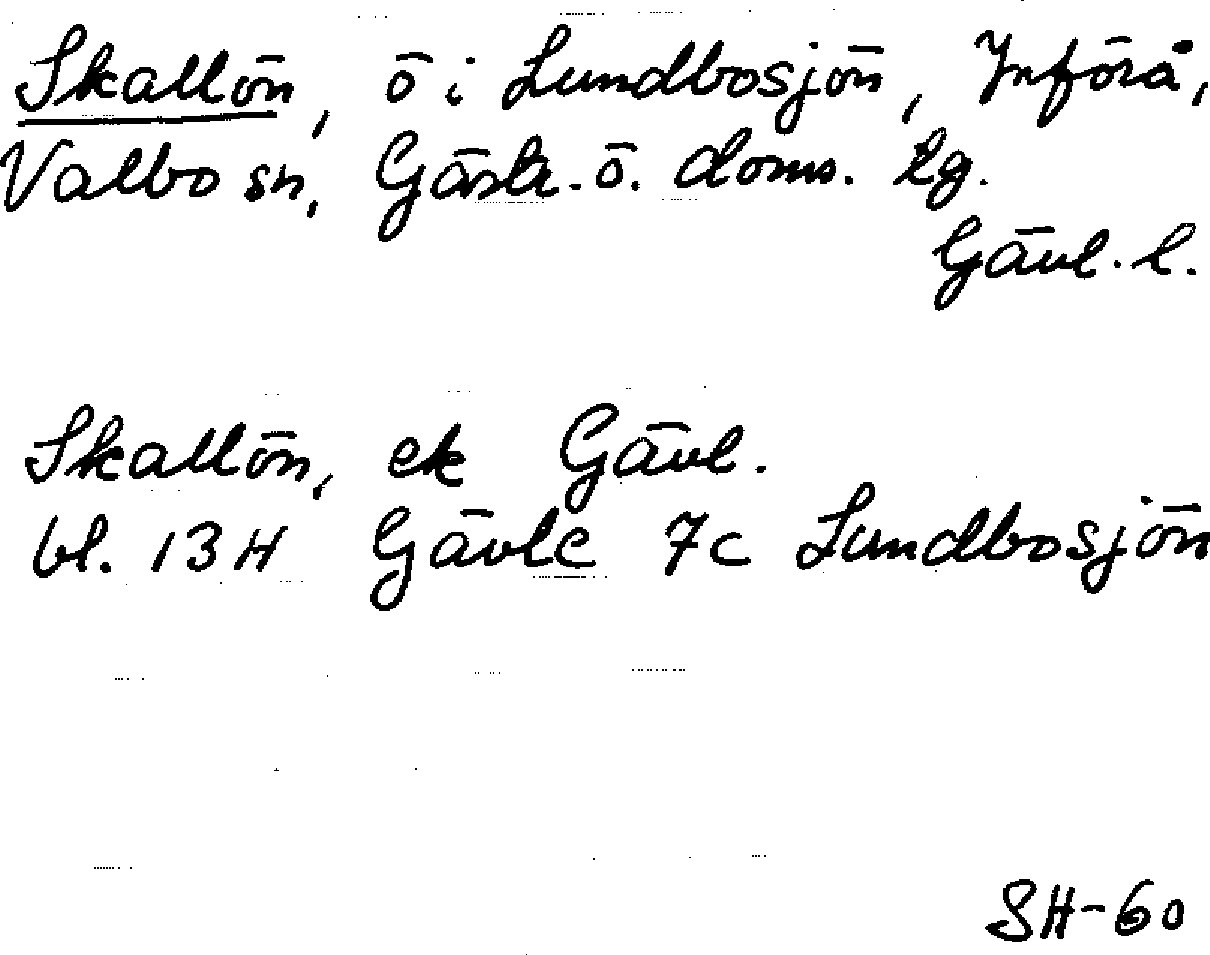 Skallön, ö i Lundbosjön, Ytterå,
Valbo sn, Gästr. ö. doms. lg.
Gävl. l.
Skallön, ek Gävl.
bl. 13H Gävle 7c Lundbosjön
SH-60